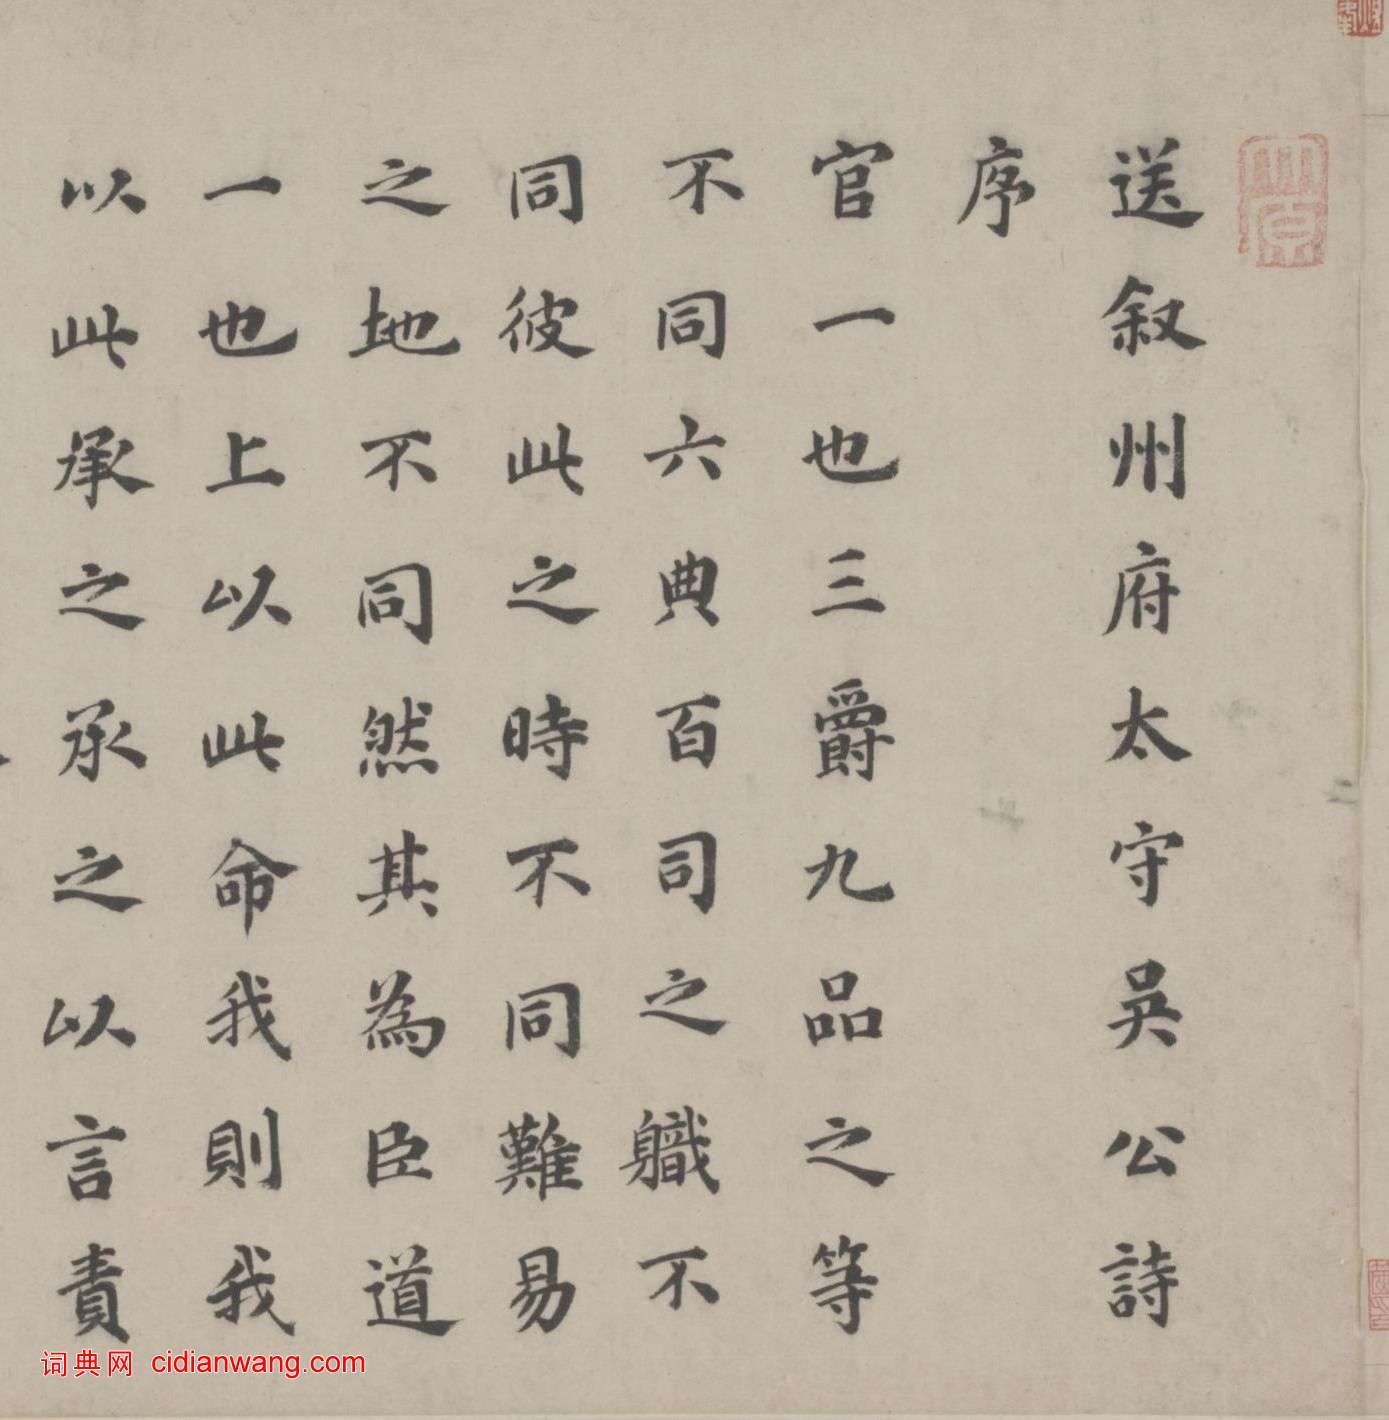 送叙州府太守吳公詩
序
官一也三爵九品之等
不同六典百司之軄不
同彼此之時不同難易
之地不同然其為臣道
一也上以此命我則我
以此承之承之以言責
词典网 cidianwang.com